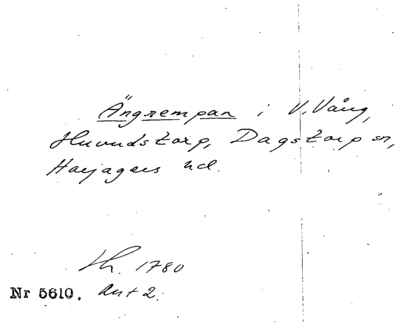 Ängrempan i V. Vång,
Huvudstorp, Dagstorp sn,
Harjagers hd.
Lh. 1780
Nr 5610. Akt 2.